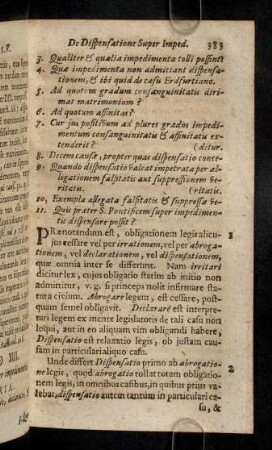 De Dispensatione Super Imped. 383
3. Qualiter & quælia impedimenta tolli possint?
4. Quæ impedimenta non admittant dispensationem, & ibi quid de casu Erdfurtiano.
5. Ad quotum gradum consanguinitatis dirimat matrimonium?
6. Ad quotum affinitas?
7. Cur jus positivum ad plures gradus impedimentum consanguinitatis & affinitatis extenderit?
(ditur.
8. Decem causæ, propter quas dispensatio conce-
9. Quando dispensatio valeat impetrata per allegationem falsitatis aut suppressionem veritatis.
(ritatis.
10. Exempla allegata falsitatis & suppressæ ve-
11. Quis præter S. Pontificem super impedimentis dispensare possit?
PRænotandum est, obligationem legis alicu- 1
jus cessare vel per irrationem, vel per abroga-
tionem, vel declarationem, vel dispensationem,
quæ omnia inter se differunt. Nam irritari
dicitur lex, cujus obligatio statim ab initio non
admittitur, v. g. si princeps nolit infirmare sta-
tura civium. Abrogare legem, est cessare, post-
quam semel obligavit. Declarare est interpre-
tari legem ex mente legislatoris de tali casu non
loqui, aut in eo aliquam vim obligandi habere,
Dispensatio est relaxatio legis, ob justam cau-
sam in particulari aliquo casu.
Unde differt Dispensatio primo ab abrogatio- 2
ne legis, quod abrogatio tollat totam obligatio-
nem legis, in omnibus casibus, in quibus prius va-
lebat, dispensatio autem tantum in particulari ca-
su, &